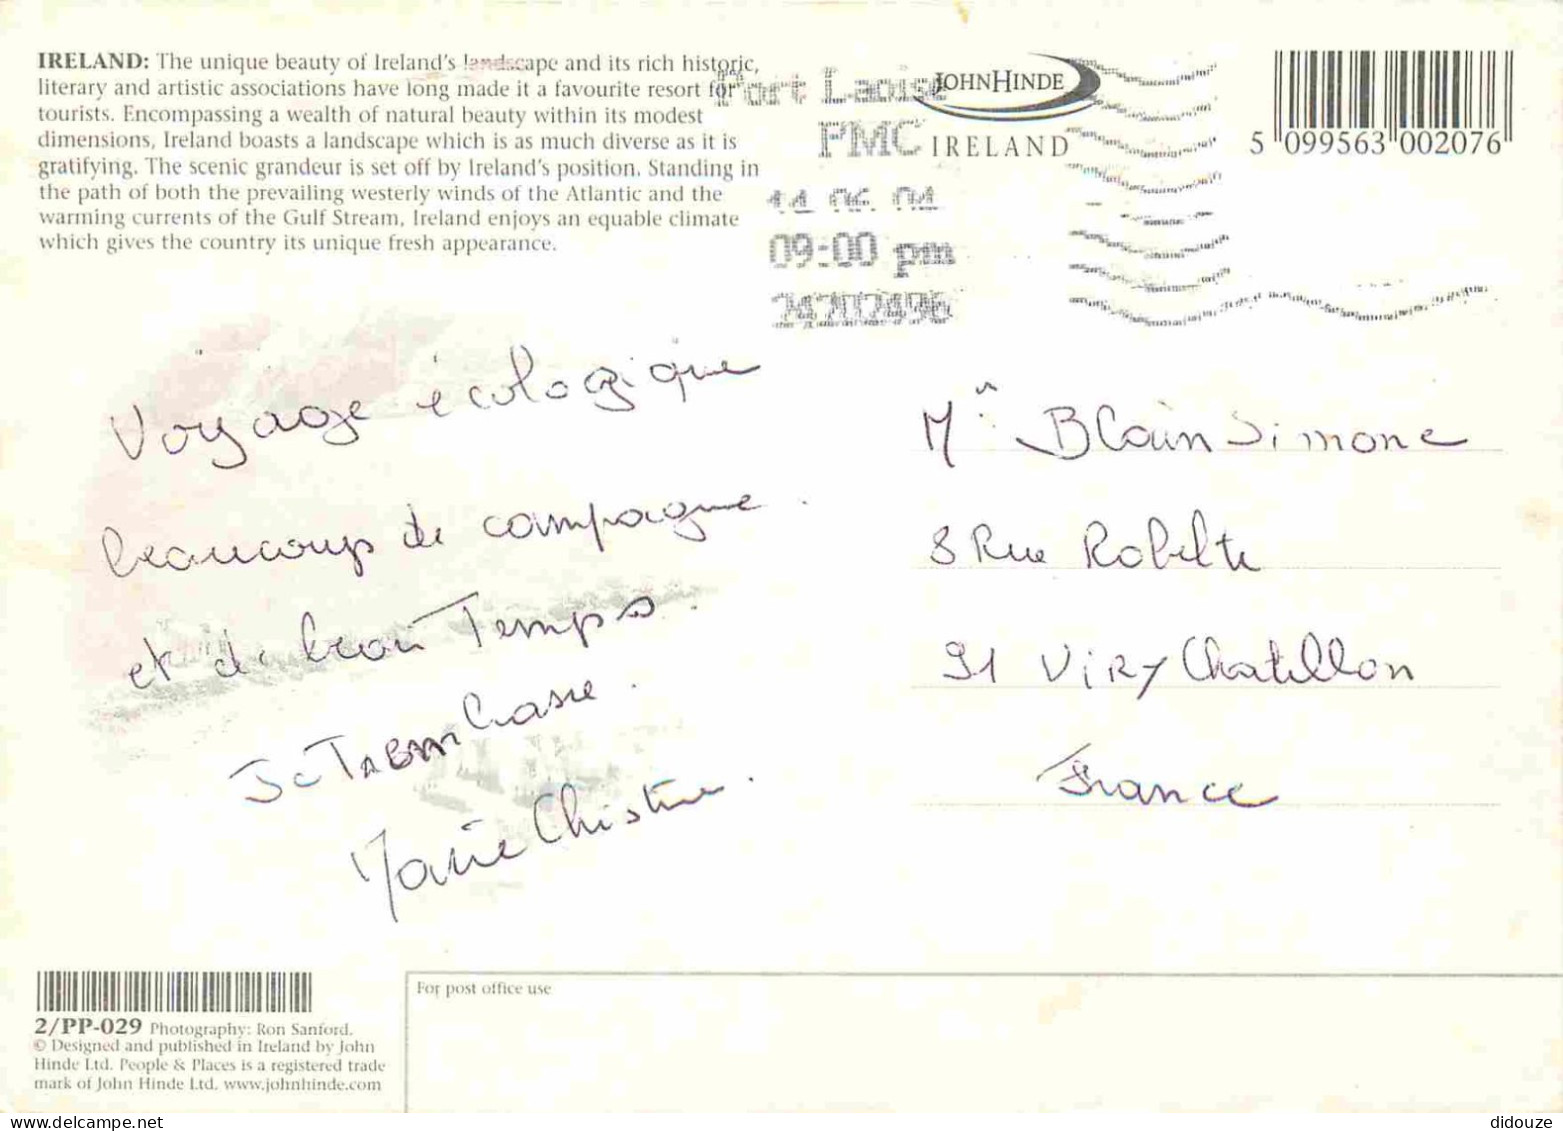 IRELAND: The unique beauty of Ireland's landscape and its rich historic,
literary and artistic associations have long made it a favourite resort for
tourists. Encompassing a wealth of natural beauty within its modest
dimensions, Ireland boasts a landscape which is as much diverse as it is
gratifying. The scenic grandeur is set off by Ireland's position. Standing in
the path of both the prevailing westerly winds of the Atlantic and the
warming currents of the Gulf Stream, Ireland enjoys an equable climate
which gives the country its unique fresh appearance.
Port Laoise
PMC
14 06 04
09:00 pm
JOHNHINDE
IRELAND
5 099563 002076
Voyage écologique
beaucoup de campagne.
et de beau Temps.
Marie Christine.
Blain Simone
8 Rue
91 Viry Chatillon
France
2/PP-029 Photography: Ron Sanford.
© Designed and published in Ireland by John
Hinde Ltd. People & Places is a registered trade
mark of John Hinde Ltd. www.johnhinde.com
For post office use
didouze